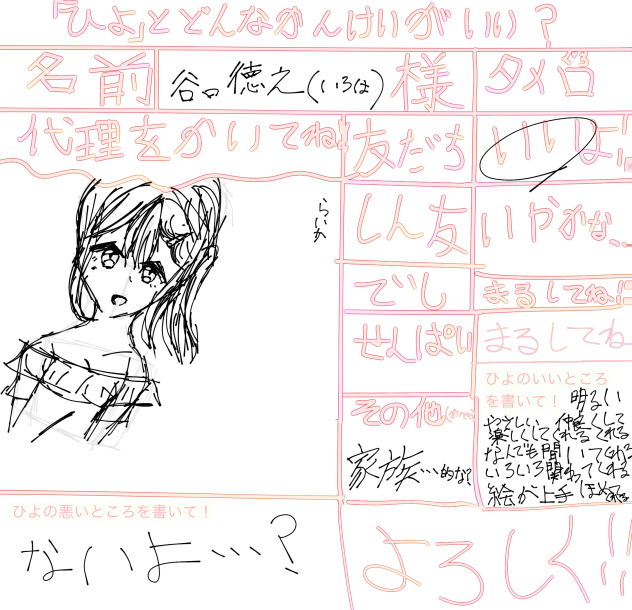 「ひよ」とどんなかんけいがいい?
名前
谷口徳之(いろは)
様
タメ口
代理をかいてね!!
友だち
いいよ!!
らいか
しん友
いやかな、、
でし
まるしてね!!
せんぱい
まるしてね
ひよのいいところ
を書いて!
明るい
やさしい 仲良くして
楽しくしてくれる くれる
なんでも聞いてくれる
いろいろ関わってくれる
絵が上手
その他
家族…的な?
ひよの悪いところを書いて!
ないよ…?
よろしく!!